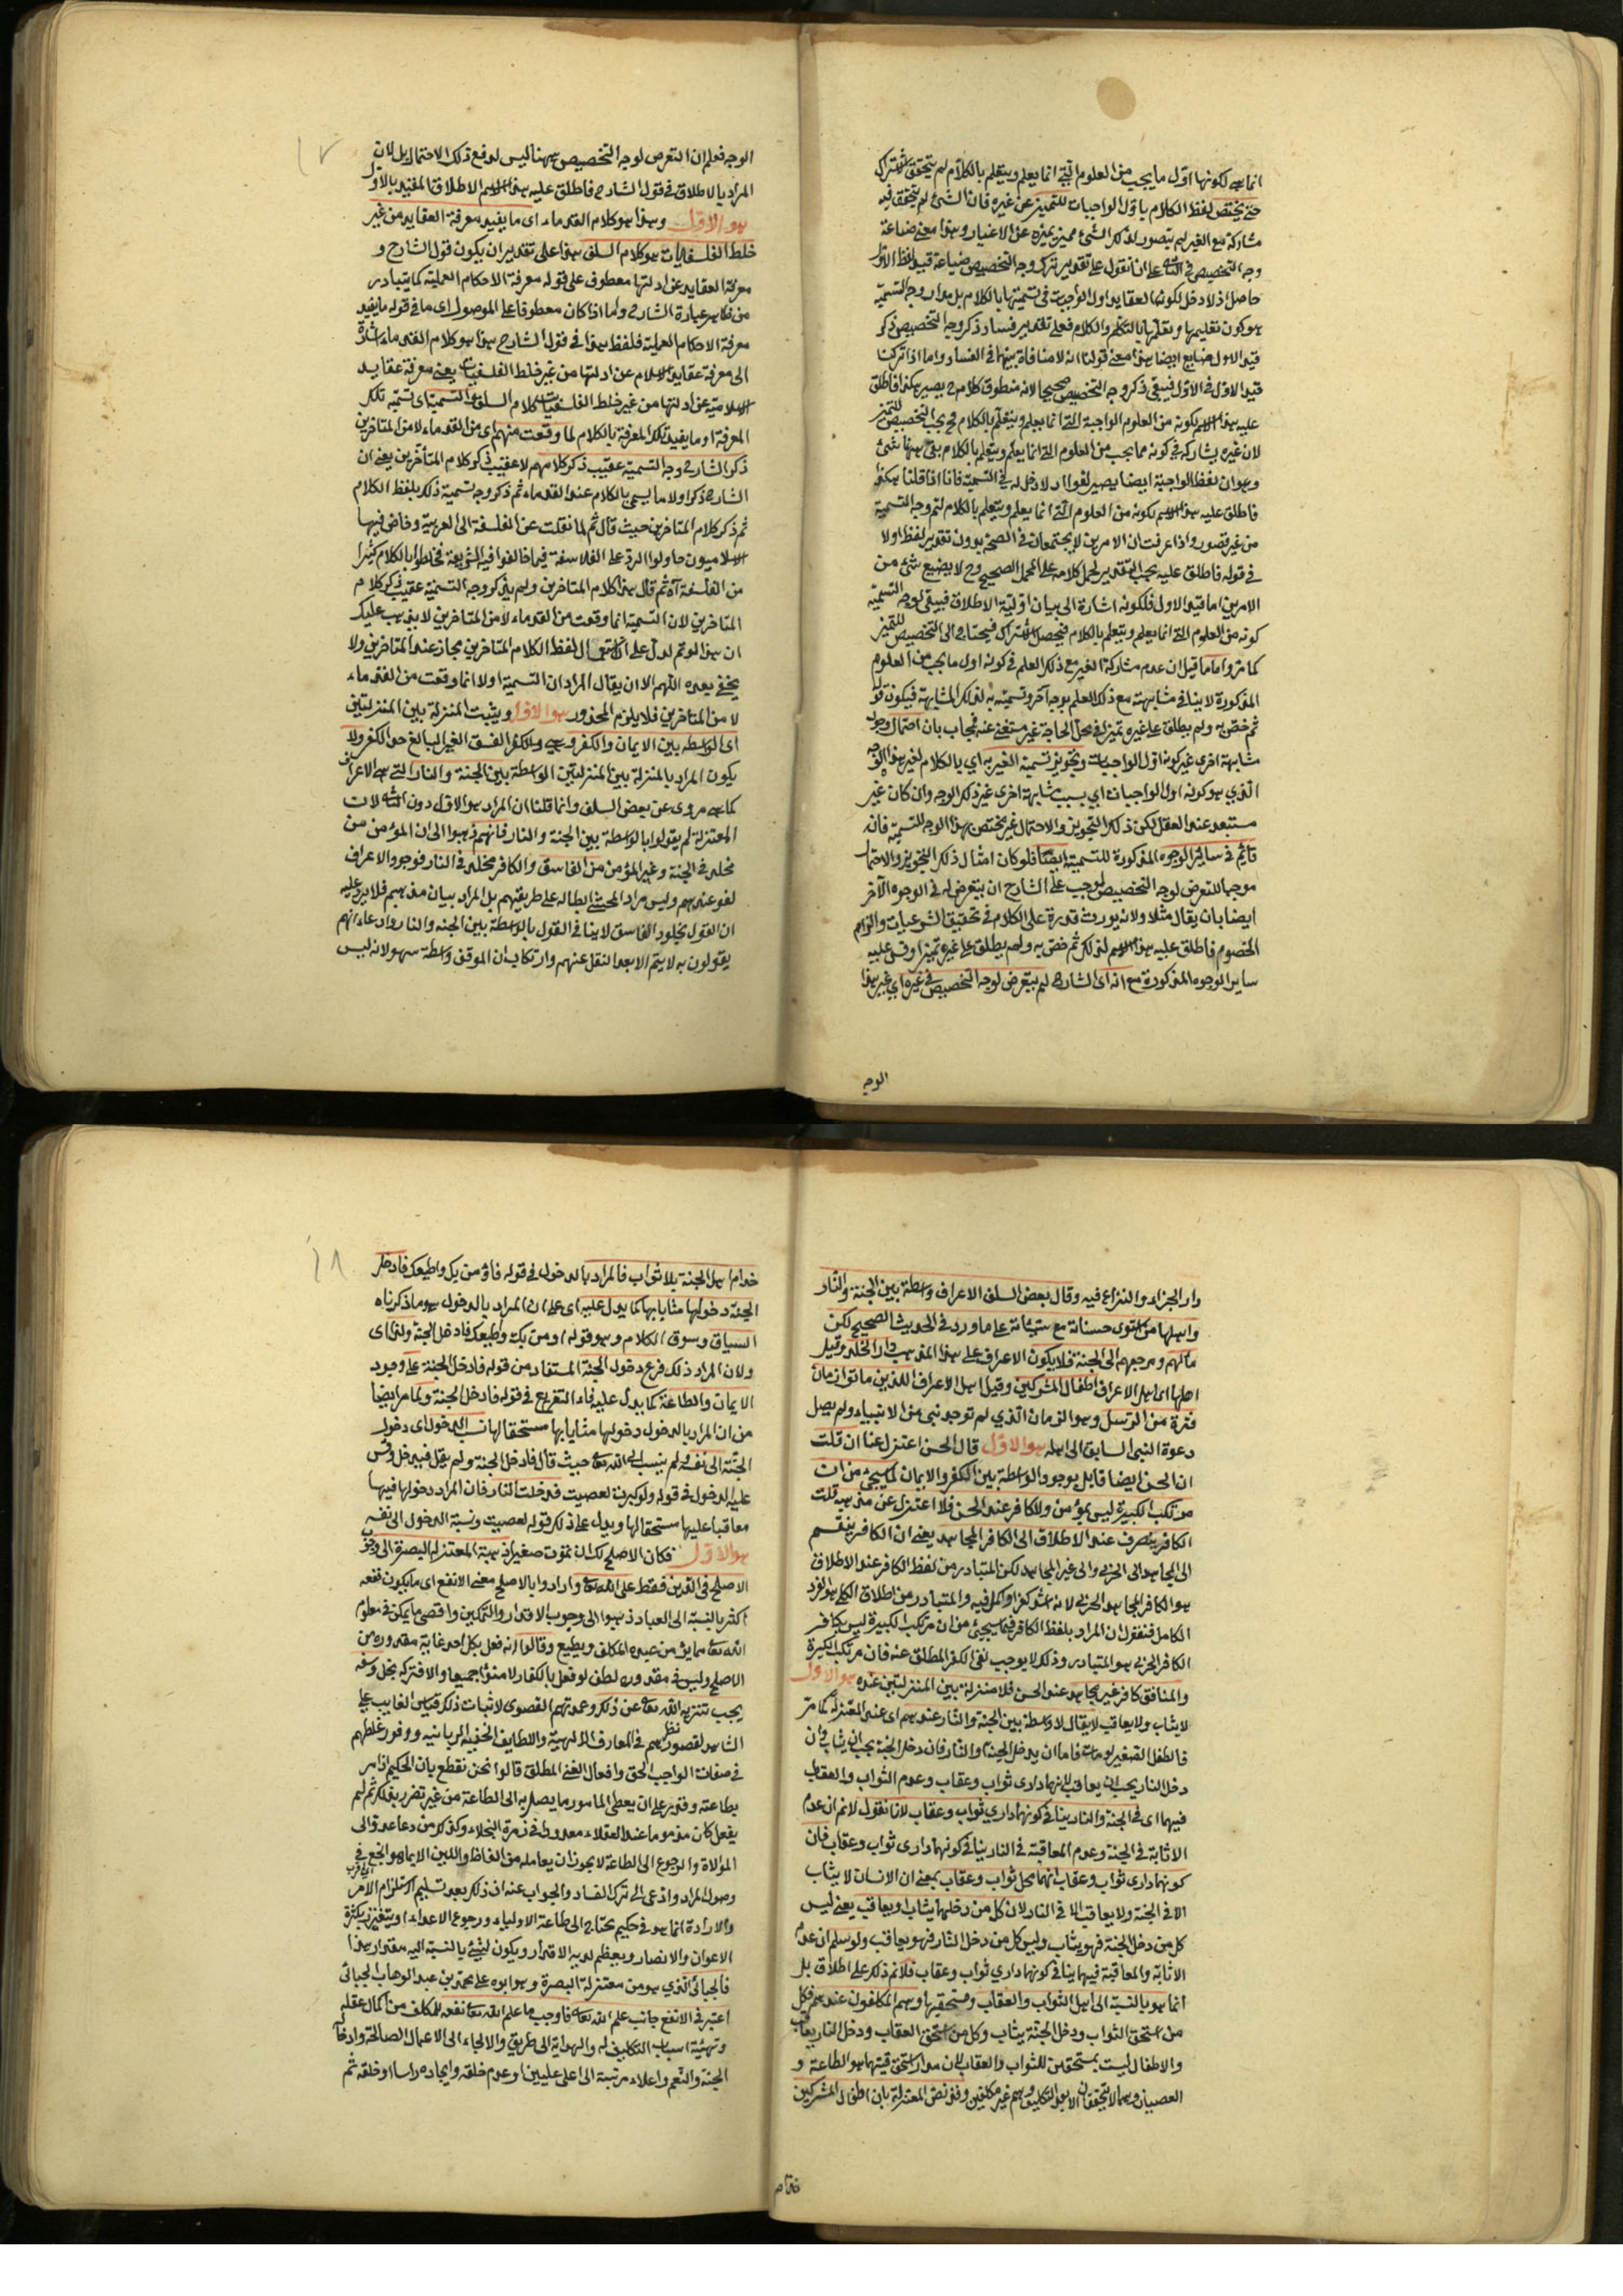 انما هى لكونها اول ما يجب من العلوم التي انما يعلم ويتعلم بالكلام لم يتحقق الاشتراك
حتى يختص لفظ الكلام باول الواجبات للتميز عن غيره فان الشئ لم يتحقق فيه
مشاركة مع الغير لم يتصور لذلك الشئ مميز يميزه عن الاغيار وهذا معنى ضياعة
وجه التخصيص في الثانى على انا نقول على تقدير ترك وجه التخصيص ضياعة قيد لفظ الاول
حاصل اذ لا دخل لكونه العقايد اول الواجبات في تسميتها بالكلام بل مدار وجه التسمية
هو كون تعليمها وتعلمها بالتكلم والكلام فعلى تقدير فساد ذكر وجه التخصيص ذكر
قيد الاول ضايع ايضا هذا معنى قولنا انه لا منافاة بينهما في الفساد واما اذا تركت
قيد الاول في الاول فيبقى ذكر وجه التخصيص صحيحا لانه منطوق كلامه ح يصير هكذا فاطلق
عليه هذا الاسم لكونه من العلوم الواجبة التي انما يعلم ويتعلم بالكلام فح يجب التخصيص للتميز
لان غيره يشاركه في كونه مما يجب من العلوم التي انما يعلم ويتعلم بالكلام بقى ههنا شئ
وهو ان لفظ الواجبة ايضا يصير لغوا اذ لا دخل له في التسمية فانا اذا قلنا هكذا
فاطلق عليه هذا الاسم لكونه من العلوم التي انما يعلم ويتعلم بالكلام لتم وجه التسمية
من غير قصور واذا عرفت ان الامرين لا يجتمعان في الصحة بدون تقدير لفظ اولا
في قوله فاطلق عليه يجب التقدير لحمل كلامه على المحمل الصحيح وح لا يضيع شئ من
الامرين اما قيد الاول فلكونه اشارة الى بيان اولية الاطلاق فيبقى لوجه التسمية
كونه من العلوم التي انما يعلم ويتعلم بالكلام فيحصل الاشتراك فيحتاج الى التخصيص للتميز
كما مر واما ما قيل ان عدم مشاركة الغير مع ذلك العلم في كونه اول ما يجب من العلوم
المذكورة لا ينافي مشابهته مع ذلك العلم بوجه آخر وتسميته به لذلك المشابهة فيكون قوله
ثم خص به ولم يطلق على غيره تميزا في محل الحاجة غير مستغنى عنه فيجاب بان احتمال وجود
مشابهة اخرى غير كونه اول الواجبات وتجويز تسمية الغير به اي بالكلام لغير هذا الوجه
الذي هو كونه اول الواجبات اي بسبب مشابهة اخرى غير ذلك الوجه وان كان غير
مستبعد عند العقل لكن ذلك التجويز والاحتمال غير مختص بهذا الوجه للتسمية فانه
قايم في ساير الوجوه المذكورة للتسمية ايضا فلو كان امثال ذلك التجويز والاحتمال
موجبا للتعرض لوجه التخصيص لوجب على الشارح ان يتعرض له في الوجوه الآخر
ايضا بان يقال مثلا ولانه يورث قدرة على الكلام في تحقيق الشرعيات والزام
الخصوم فاطلق عليه هذا الاسم لذلك ثم خص به ولم يطلق على غيره تميزا وقس عليه
ساير الوجوه المذكورة مع انه اى الشارح لم يتعرض لوجه التخصيص في غيره اي غير هذا
الوجه
الوجه فعلم ان التعرض لوجه التخصيص ههنا ليس لدفع ذلك الاحتمال بل لان
المراد بالاطلاق في قول الشارح فاطلق عليه هذا الاسم الاطلاق المقيد بالاول
هو الاول وهذا هو كلام القدماء اى ما يفيد معرفة العقايد من غير
خلط الفلسفيات هو كلام السلف هذا على تقدير ان يكون قول الشارح و
معرفة العقايد عن ادلتها معطوف على قوله معرفة الاحكام العملية كما يتبادر
من ظاهر عبارة الشارح واما اذا كان معطوفا على الموصول اى ما في قوله ما يفيد
معرفة الاحكام العملية فلفظ هذا في قول الشارح هذا هو كلام القدماء اشارة
الى معرفة عقايد الاسلام عن ادلتها من غير خلط الفلسفيات يعنى معرفة عقايد
الاسلامية عن ادلتها من غير خلط الفلسفيات كلام السلف والتسمية اى تسمية تلك
المعرفة او ما يفيد تلك المعرفة بالكلام لما وقعت منهم اى من القدماء لا من المتاخرين
ذكر الشارح وجه التسمية عقيب ذكر كلامهم لا عقيب ذكر كلام المتأخرين يعنى ان
الشارح ذكر اولا ما يسمى بالكلام عند القدماء ثم ذكر وجه تسمية ذلك بلفظ الكلام
ثم ذكر كلام المتاخرين حيث قال ثم لما نقلت عن الفلسفة الى العربية وخاض فيها
الاسلاميون حاولوا الرد على الفلاسفة فيما خالفوا فيه الشريعة فخلطوا بالكلام كثيرا
من الفلسفة آه ثم قال هذا كلام المتاخرين ولم يذكر وجه التسمية عقيب ذكر كلام
المتاخرين لان التسمية انما وقعت من القدماء لا من المتاخرين لا يذهب عليك
ان هذا لو تم لدل على ان استعمال لفظ الكلام المتاخرين مجاز عند المتاخرين ولا
يخفى بعده اللهم الا ان يقال المراد ان التسمية اولا انما وقعت من القدماء
لا من المتاخرين فلا يلزم المحذور هو الاول ويثبت المنزلة بين المنزلتين
اى الواسطة بين الايمان والكفر وهى والكفر الفسق الغير البالغ حد الكفر ولا
يكون المراد بالمنزلة بين المنزلتين الواسطة بين الجنة والنار التي هى الاعراف
كما هى مروى عن بعض السلف وانما قلنا ان المراد هو الاول دون الثانى لان
المعتزلة لم يقولوا بالواسطة بين الجنة والنار فانهم ذهبوا الى ان المؤمن من
مخلد في الجنة وغير المؤمن من الفاسق والكافر مخلد في النار فوجود الاعراف
لغو عندهم وليس مراد المحشى ابطاله على طريقهم بل المراد بيان مذهبهم فلا يرد عليه
ان القول بخلود الفاسق لا ينافي القول بالواسطة بين الجنة والنار وادعاء انهم
يقولون به لا يتم الا بعد النقل عنهم وارتكاب ان الموقف واسطة سهو لانه ليس
دار الجزاء والنزاع فيه وقال بعض السلف الاعراف واسطة بين الجنة والنار
واهلها من استوى حسناته مع سيئاته على ما ورد في الحديث الصحيح لكن
مآلهم ومرجعهم الى الجنة فلا يكون الاعراف على هذا المذهب دار الخلد وقيل
اهلها اى اهل الاعراف اطفال المشركين وقيل اهل الاعراف الذين ماتوا زمان
فترة من الرسل وهو الزمان الذي لم توجد نبى من الانبياء ولم يصل
دعوة النبى السابق الى اهله هو الاول قال الحسن اعتزل عنا ان قلت
ان الحسن ايضا قايل بوجود الواسطة بين الكفر والايمان لما سيجئ من ان
مرتكب الكبيرة ليس بمؤمن ولا كافر عند الحسن فلا اعتزل عن مذهبه قلت
الكافر ينصرف عند الاطلاق الى الكافر المجاهد يعنى ان الكافر ينقسم
الى المجاهد اى الحربى والى غير المجاهد لكن المتبادر من لفظ الكافر عند الاطلاق
هو الكافر المجاهد الحربى لانه اشد كفرا وكمل فيه والمتبادر من اطلاق الكلى هو الفرد
الكامل فنقول ان المراد بلفظ الكافر فيما سيجئ من ان مرتكب الكبيرة ليس بكافر
الكافر الحربى هو المتبادر وذلك لا يوجب نفى الكفر المطلق عنه فان مرتكب الكبيرة
والمنافق كافر غير مجاهد عند الحسن فلا منزلة بين المنزلتين عنده هو الاول
لا يثاب ولا يعاقب لا يقال لا واسطة بين الجنة والنار عندهم اى عند المعتزلة كما مر
فالطفل الصغير لو مات فاما ان يدخل الجنة او النار فان دخل الجنة يجب ان يثاب وان
دخل النار يجب ان يعاقب لانهما دارى ثواب وعقاب وعدم الثواب والعقاب
فيهما اى في الجنة والنار ينافي كونهما داري ثواب وعقاب لانا نقول لا نم ان عدم
الاثابة في الجنة وعدم المعاقبة في النار ينافي كونهما دارى ثواب وعقاب فان
كونهما دارى ثواب وعقاب انهما محل ثواب وعقاب بمعنى ان الانسان لا يثاب
الا في الجنة ولا يعاقب الا في النار لان كل من دخلهما يثاب او يعاقب يعنى ليس
كل من دخل الجنة فهو يثاب وليس كل من دخل النار فهو يعاقب ولو سلم ان عدم
الاثابة والمعاقبة فيهما ينافي كونهما داري ثواب وعقاب فلا نم ذلك على اطلاق بل
انما هو بالنسبة الى اهل الثواب والعقاب ومستحقيها وهم المكلفون عندهم فكل
من استحق الثواب ودخل الجنة يثاب وكل من استحق العقاب ودخل النار يعاقب
والاطفال ليست بمستحقين للثواب والعقاب لان مدار استحقاقيتهما هو الطاعة و
العصيان وهما لا يتحققان الا بعد التكليف وهم غير مكلفين وقد نص المعتزلة بان اطفال المشركين
خدام
خدام اهل الجنة بلا ثواب فالمراد بالدخول في قوله فاؤمن بك واطيعك فادخل
الجنة دخولها مثابا بها كما يدل عليه اى على ان المراد بالدخول هو ما ذكرناه
السياق وسوق الكلام وهو قوله اومن بك واطيعك فادخل الجنة ولذا اى
ولان المراد ذلك فرع دخول الجنة المستفاد من قوله فادخل الجنة على وجود
الايمان والطاعة كما يدل عليه فاء التفريع في قوله فادخل الجنة ولما مر ايضا
من ان المراد بالدخول دخولها مثابا بها مستحقا لها نسب الدخول اى دخول
الجنة الى نفسه ولم ينسب الى الله تعالى حيث قال فادخل الجنة ولم يقل فيدخل وقس
عليه الدخول في قوله ولو كبرت لعصيت فدخلت النار فان المراد دخولها فيها
معاقبا عليها مستحقا لها ويدل على ذلك قوله لعصيت ونسبة الدخول الى نفسه
هو الاول فكان الاصلح لك ان تموت صغيرا ذهبت المعتزلة البصرة الى وجوب
الاصلح في الدين فقط على الله تعالى وارادوا بالاصلح معنى الانفع اى ما يكون نفعه
اكثر بالنسبة الى العباد ذهبوا الى وجوب الاقدار والتمكين واقصى ما يمكن في معلوم
الله تعالى مما يؤمن عنده المكلف ويطيع وقالوا انه فعل بكل احد غاية مقدوره من
الاصلح وليس في مقدوره لطف لو فعل بالكفار لامنوا جميعا والا فتركه بخل وسفه
يجب تنزيه الله تعالى عن ذلك وعدتهم القصوى لاثبات ذلك قياس الغايب على
الشاهد لقصور نظرهم في المعارف الالهية واللطايف الخفية الربانيه ووفور غلطهم
في صفات الواجب الحق وافعال الغنى المطلق قالوا نحن نقطع بان الحكيم اذا مر
بطاعته وقدر على ان يعطى المأمور ما يصل به الى الطاعة من غير تضرر بذلك ثم لم
يفعل كان مذموما عند العقلاء معدودا في زمرة البخلاء وكذلك من دعا عدوه الى
الموالاة والرجوع الى الطاعة لا يجوز ان يعامله من الغلظ واللين الا بما هو انجع في
وصول المراد وادعى الى ترك الفساد والجواب عنه ان ذلك بعد تسليم استلزام الامر
والارادة انما هو في حكيم يحتاج الى طاعة الاولياء ورجوع الاعداء ويتعزز بكثرة
الاعوان والانصار ويعظم لديه الاقدار ويكون للشئ بالنسبة اليه مقدار هذا
فالجبائى الذي هو من معتزلة البصرة وهو ابوه على محمد بن عبد الوهاب الجبائى
اعتبر في الانفع جانب علم الله تعالى فاوجب ما علم الله تعالى نفعه للمكلف من اكمال عقله
وتهيئة اسباب التكليف له والهداية الى طريق والالجاء الى الاعمال الصالحة وادخال
الجنة والنعم واعلاء مرتبته الى اعلى عليين او عدم خلقه وايجاده راسا او خلقه ثم